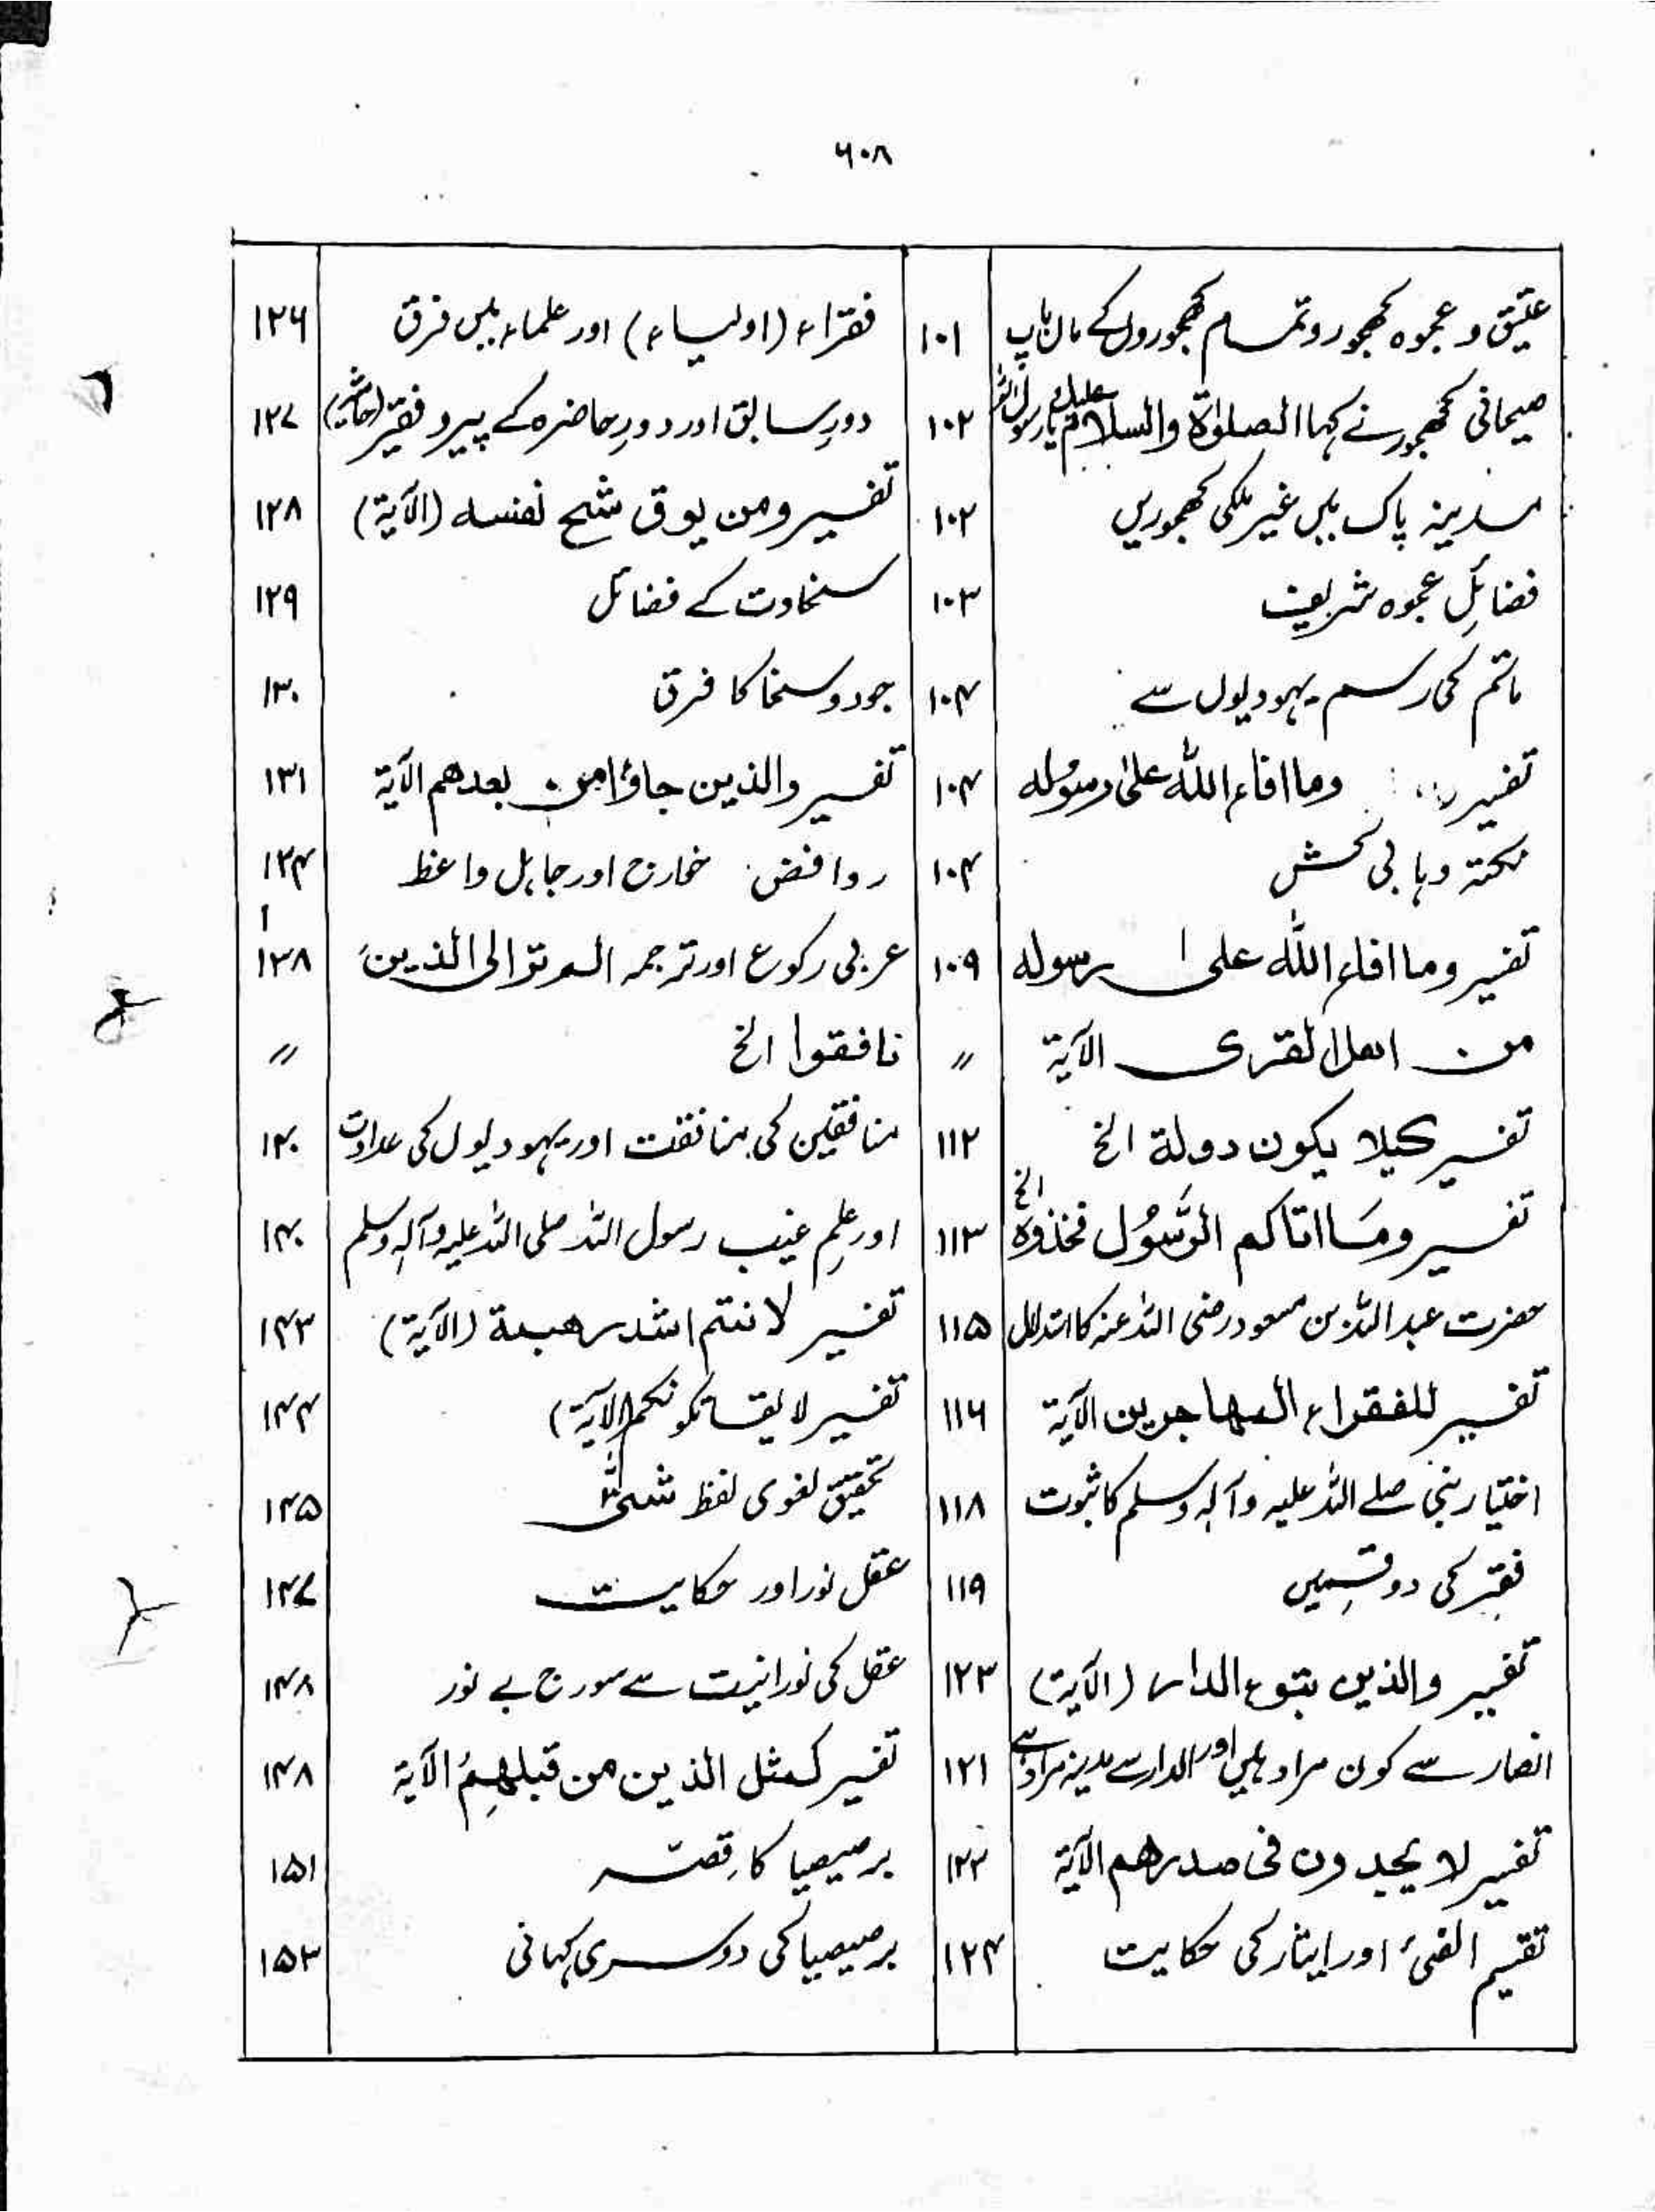 ۶۰۸
عتیق و عجوہ کھجور و تمام کھجوروں کے ماں باپ ۱۰۱
صیحانی کھجور نے کہا الصلوٰۃ والسلام علیک یا رسول اللہ ۱۰۲
مدینہ پاک میں غیر ملکی کھجوریں ۱۰۲
فضائلِ عجوہ شریف ۱۰۳
ماتم کی رسم یہودیوں سے ۱۰۴
تفسیر وما افاء اللہ علیٰ رسولہ ۱۰۴
نکتہ وہابی کش ۱۰۴
تفسیر وما افاء اللہ علی رسولہ ۱۰۹
من اھل القری الآیۃ 〃
تفسیر کیلا یکون دولۃ الخ ۱۱۲
تفسیر ومَا اتاکم الرَّسُول فخذوہ الخ ۱۱۳
حضرت عبداللہ بن مسعود رضی اللہ عنہ کا استدلال ۱۱۵
تفسیر للفقراء المھاجرین الآیۃ ۱۱۶
اختیار نبی صلے اللہ علیہ وآلہ وسلم کا ثبوت ۱۱۸
فقر کی دو قسمیں ۱۱۹
تفسیر والذین تبوء الدار (الآیۃ) ۱۲۳
انصار سے کون مراد ہیں اور الدار سے مدینہ مراد ہے ۱۲۱
تفسیر لا یجدون فی صدرھم الآیۃ ۱۲۳
تقسیم الفئ اور ایثار کی حکایت ۱۲۴
فقراء (اولیاء) اور علماء میں فرق ۱۲۶
دورِ سابق اور دورِ حاضرہ کے پیر و فقیر (حاشیہ) ۱۲۷
تفسیر ومن یوق شح نفسہ (الآیۃ) ۱۲۸
سخاوت کے فضائل ۱۲۹
جود و سخا کا فرق ۱۳۰
تفسیر والذین جاؤا من بعدھم الآیۃ ۱۳۱
روافض خارج اور جاہل واعظ ۱۳۴
عربی رکوع اور ترجمہ الم تر الی الذین ۱۳۸
نافقوا الخ 〃
منافقین کی منافقت اور یہودیوں کی عداوت ۱۴۰
اور علمِ غیب رسول اللہ صلی اللہ علیہ وآلہ وسلم ۱۴۰
تفسیر لا نتم اشد رھبۃ (الآیۃ) ۱۴۳
تفسیر لا یقاتلونکم (الآیۃ) ۱۴۴
تحقیق لغوی لفظ شتیّٰ ۱۴۵
عقل نور اور حکایت ۱۴۷
عقل کی نورانیت سے سورج بے نور ۱۴۸
تفسیر کمثل الذین من قبلھِمُ الآیۃ ۱۴۸
برصیصا کا قصّہ ۱۵۱
برصیصا کی دوسری کہانی ۱۵۳